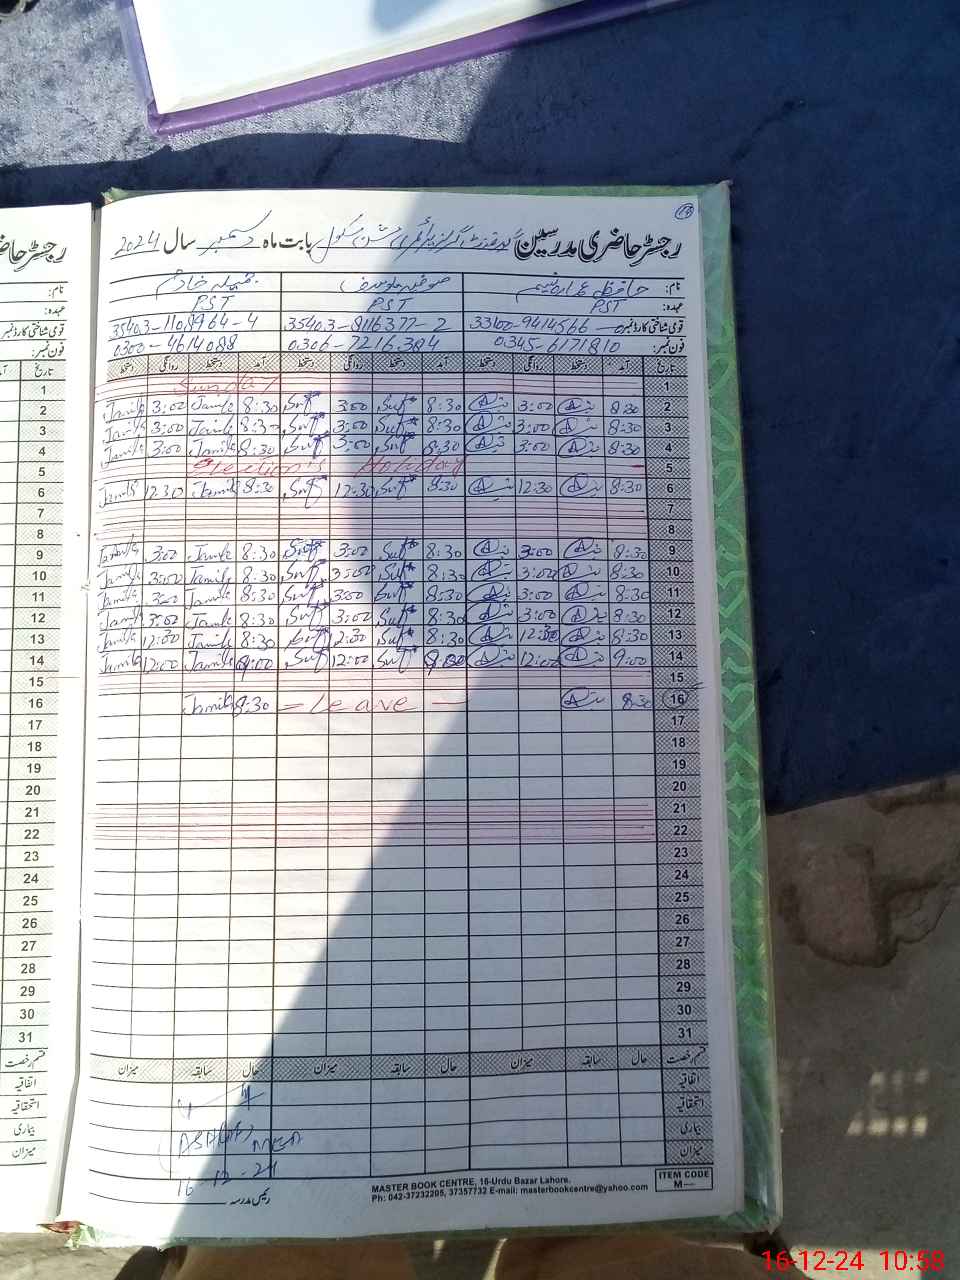 14
رجسٹر حاضری مدرسین گورنمنٹ گرلز پرائمری سکول بابت ماہ دسمبر سال 2024
نام: حافظہ عمارہ نسیم صوفیہ یوسف جمیلہ خادم
عہدہ: PST PST PST
قومی شناختی کارڈ نمبر: 33100-9414566 35403-8116377-2 35403-1108964-4
فون نمبر: 0345-6171810 0306-7216384 0300-4614088
تاریخ آمد دستخط روانگی دستخط آمد دستخط روانگی دستخط آمد دستخط روانگی دستخط
1 Sunday 1
2 8:30 3:00 8:30 Suf 3:00 Suf 8:30 Jamila 3:00 Jamila
3 8:30 3:00 8:30 Suf 3:00 Suf 8:30 Jamila 3:00 Jamila
4 8:30 3:00 8:30 Suf 3:00 Suf 8:30 Jamila 3:00 Jamila
5 Election's Holiday
6 8:30 12:30 8:30 Suf 12:30 Suf 8:30 Jamila 12:30 Jamila
7
8
9 8:30 3:00 8:30 Suf 3:00 Suf 8:30 Jamila 3:00 Jamila
10 8:30 3:00 8:30 Suf 3:00 Suf 8:30 Jamila 3:00 Jamila
11 8:30 3:00 8:30 Suf 3:00 Suf 8:30 Jamila 3:00 Jamila
12 8:30 3:00 8:30 Suf 3:00 Suf 8:30 Jamila 3:00 Jamila
13 8:30 12:30 8:30 Suf 12:30 Suf 8:30 Jamila 12:30 Jamila
14 9:00 12:00 9:00 Suf 12:00 Suf 9:00 Jamila 12:00 Jamila
15
16 8:30 - Leave - 8:30 Jamila
17
18
19
20
21
22
23
24
25
26
27
28
29
30
31
قسم رخصت حال سابقہ میزان حال سابقہ میزان حال سابقہ میزان
اتفاقیہ
استحقاقیہ
بیماری
میزان
16-12-24
رئیس مدرسہ
MASTER BOOK CENTRE, 16-Urdu Bazar Lahore.
Ph: 042-37232205, 37357732 E-mail: masterbookcentre@yahoo.com
ITEM CODE
M—
رجسٹر حاضری
نام:
عہدہ:
قومی شناختی کارڈ نمبر
فون نمبر:
تاریخ
1
2
3
4
5
6
7
8
9
10
11
12
13
14
15
16
17
18
19
20
21
22
23
24
25
26
27
28
29
30
31
قسم رخصت
اتفاقیہ
استحقاقیہ
بیماری
میزان
16-12-24 10:58